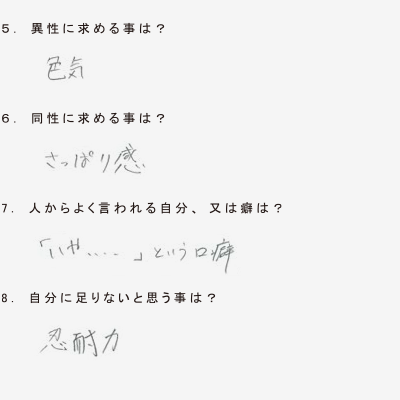 5. 異性に求める事は？
色気
6. 同性に求める事は？
さっぱり感
7. 人からよく言われる自分、又は癖は？
「いや....」という口癖
8. 自分に足りないと思う事は？
忍耐力